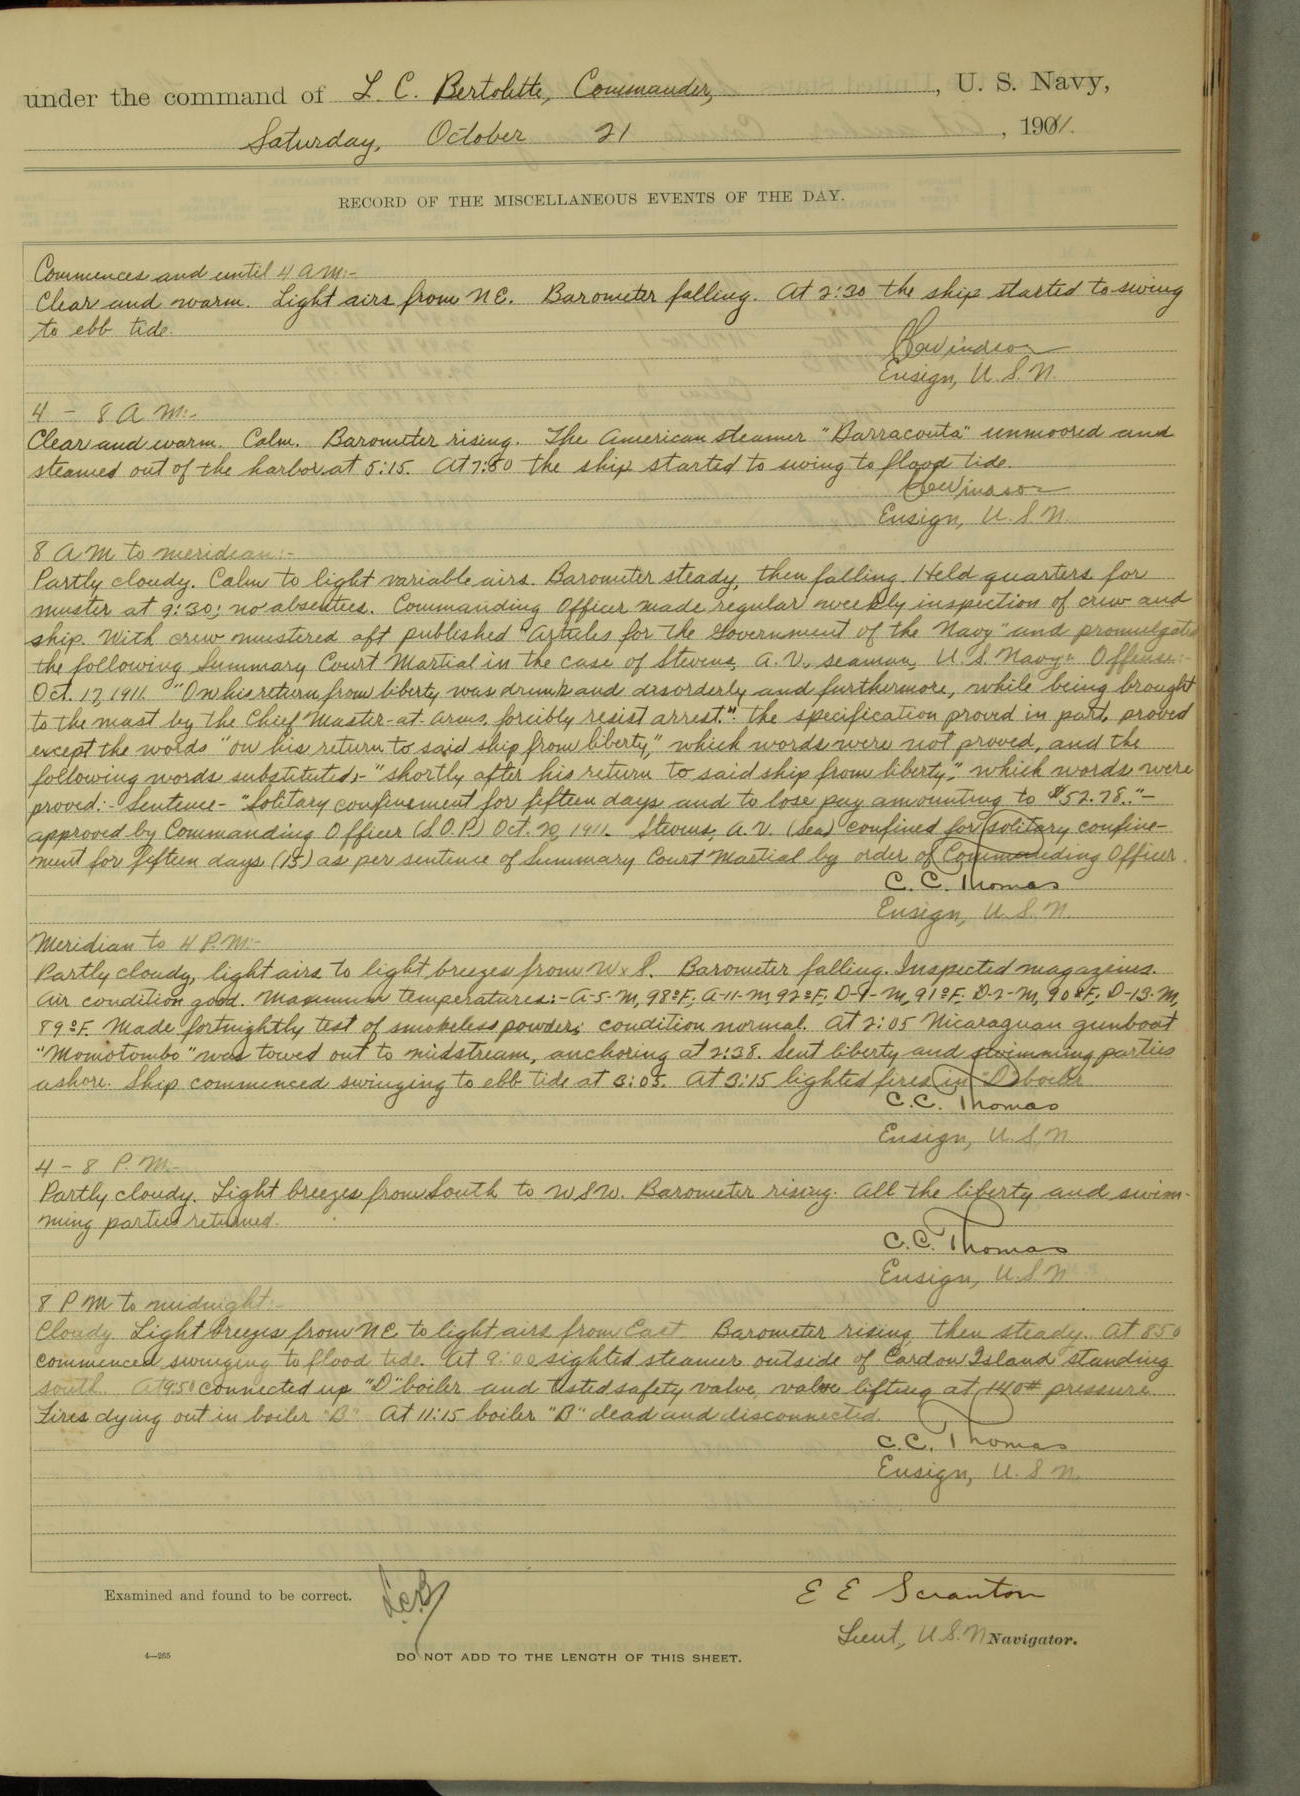 under the command of L. C. Bertolette, Commander, , U. S. Navy,
Saturday, October 21 , 1911.
RECORD OF THE MISCELLANEOUS EVENTS OF THE DAY.
Commences and until 4 A M:-
Clear and warm. Light airs from NE. Barometer falling. At 2:30 the ship started to swing
to ebb tide.
Ensign, U. S. N.
4 - 8 A M:-
Clear and warm. Calm. Barometer rising. The American steamer "Barracouta" unmoored and
steamed out of the harbor at 5:15. At 7:50 the ship started to swing to flood tide.
Ensign, U. S. N.
8 A M to meridian:-
Partly cloudy. Calm to light variable airs. Barometer steady, then falling. Held quarters for
muster at 9:30; no absentees. Commanding Officer made regular weekly inspection of crew and
ship. With crew mustered aft published "Articles for the Government of the Navy" and promulgated
the following Summary Court Martial in the case of Stevens, A. V., seaman, U. S. Navy. Offense:-
Oct. 17, 1911. "On his return from liberty was drunk and disorderly and furthermore, while being brought
to the mast by the Chief Master-at-Arms, forcibly resist arrest." the specification proved in part, proved
except the words "on his return to said ship from liberty," which words were not proved, and the
following words substituted:- "shortly after his return to said ship from liberty," which words were
proved:- Sentence- "Solitary confinement for fifteen days and to lose pay amounting to $52.78."-
approved by Commanding Officer (S.O.P.) Oct. 20, 1911. Stevens, A. V. (Sea) confined for solitary confine-
ment for fifteen days (15) as per sentence of Summary Court Martial by order of Commanding Officer.
C. C. Thomas
Ensign, U. S. N.
Meridian to 4 P. M:-
Partly cloudy, light airs to light breezes from W x S. Barometer falling. Inspected magazines.
Air condition good. Maximum temperatures:- A-5-M, 98°F; A-11-M, 92°F; D-1-M, 91°F; D-2-M, 90°F; D-13-M,
89°F. Made fortnightly test of smokeless powder; condition normal. At 2:05 Nicaraguan gunboat
"Momotombo" was towed out to midstream, anchoring at 2:38. Sent liberty and swimming parties
ashore. Ship commenced swinging to ebb tide at 3:05. At 3:15 lighted fires in "D" boiler
C. C. Thomas
Ensign, U. S. N.
4 - 8 P. M.-
Partly cloudy. Light breezes from South to WSW. Barometer rising. All the liberty and swim-
ming parties returned.
C. C. Thomas
Ensign, U. S. N.
8 P M to midnight:-
Cloudy. Light breezes from NE to light airs from East. Barometer rising, then steady. At 8:50
commenced swinging to flood tide. At 9:00 sighted steamer outside of Cardon Island standing
south. At 9:50 connected up "D" boiler and tested safety valve, valve lifting at 140# pressure.
Fires dying out in boiler "B". At 11:15 boiler "B" dead and disconnected.
C. C. Thomas
Ensign, U. S. N.
Examined and found to be correct. L.C.B.
E E Scranton
Lieut, U. S. N. Navigator.
4—265
DO NOT ADD TO THE LENGTH OF THIS SHEET.